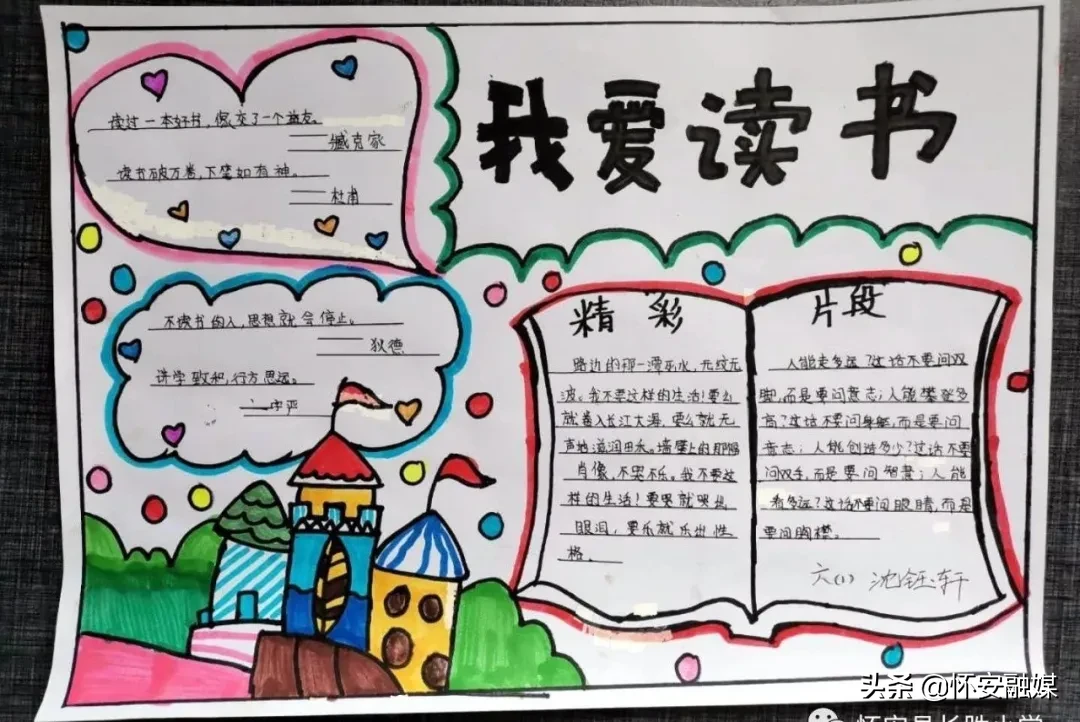 我爱读书
读过一本好书,像交了一个益友。
——臧克家
读书破万卷,下笔如有神。
——杜甫
不读书的人,思想就会停止。
——狄德
讲学致和,行方思远。
精彩
路边的那一潭死水,无纹无
波。我不要这样的生活!要么
就卷入长江大海,要么就无
声地滋润田禾。墙壁上的那幅
肖像,不哭不乐。我不要这
样的生活!要哭就哭出
眼泪,要乐就乐出性
格。
片段
人能走多远?这话不要问双
脚,而是要问意志;人能攀登多
高?这话不要问身躯,而是要问
意志;人能创造多少?这话不要
问双手,而是要问智慧;人能
看多远?这话不要问眼睛,而是
要问胸襟。
六(1) 沈钰轩
头条 @怀安融媒
怀安县长胜小学